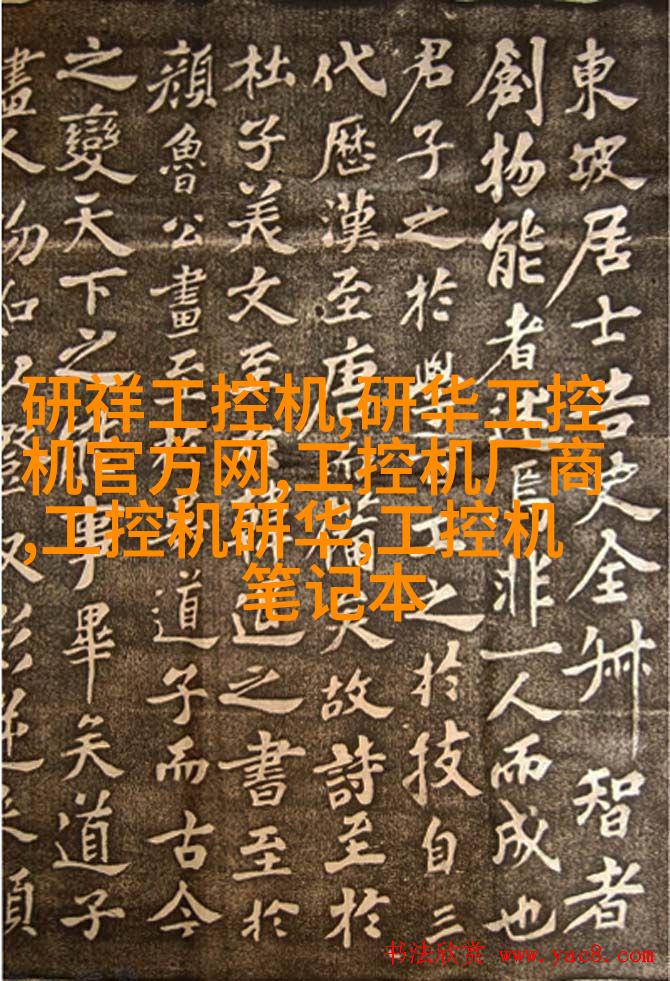 東坡居士告史全叔 智者
創物能者述焉非一人而成也
君子之於學百工之於技自三
代歷漢至唐而備矣故詩至於
杜子美文至於韓退之書至於
顏魯公畫至於吳道子而古今
之變天下之能事畢矣道子
畫人物如以燈取影逆來順
研祥工控机,研华工控
机官方网,工控机厂商
,工控机研华,工控机
笔记本
书法欣赏 www.yac8.com